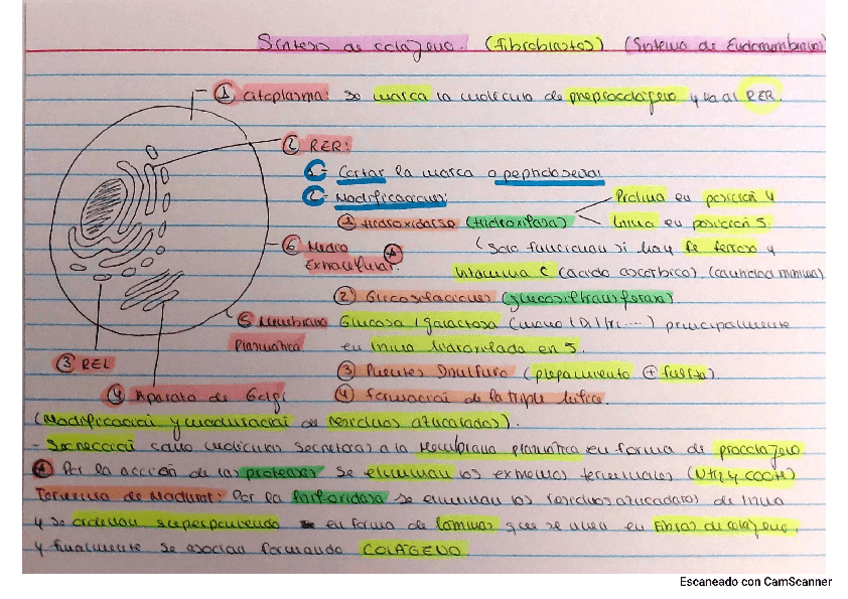 Síntesis de colágeno. (Fibroblastos) (Sistema de Endomembranas)
① Citoplasma: se marca la molécula de preprocolágeno y va al RER.
② RER:
1- Cortar la marca o peptido señal
2- Modificaciones:
① Hidroxidarso (Hidroxilasa)
Prolina en posición 4
lisina en posición 5
(solo funcionan si hay Fe ferroso y
vitamina C (ácido ascórbico). (cantidad mínima)
② Glucosilaciones (glucosiltransferasa)
Glucosa / galactosa (mono / Di / tri....) principalmente
en lisina hidroxilada en 5.
③ Puentes Disulfuro (plegamiento ⊕ fuerte).
④ formación de la triple hélice.
⑥ Medio
Extracelular.
⑤ Membrana
Plasmática
③ REL
④ Aparato de Golgi
(Modificación y maduración de residuos azucarados).
- Secrección como moléculas secretoras a la Membrana plasmática en forma de procolágeno
* Por la acción de las proteasas se eliminan los extremos terminales (NH2 y COOH)
Termina de Madurar: Por la fosforidasa se eliminan los residuos azucarados de lisina
y se ordenan superponiendo en forma de láminas que se unen en Fibras de colágeno,
y finalmente se asocian formando COLÁGENO.
Escaneado con CamScanner